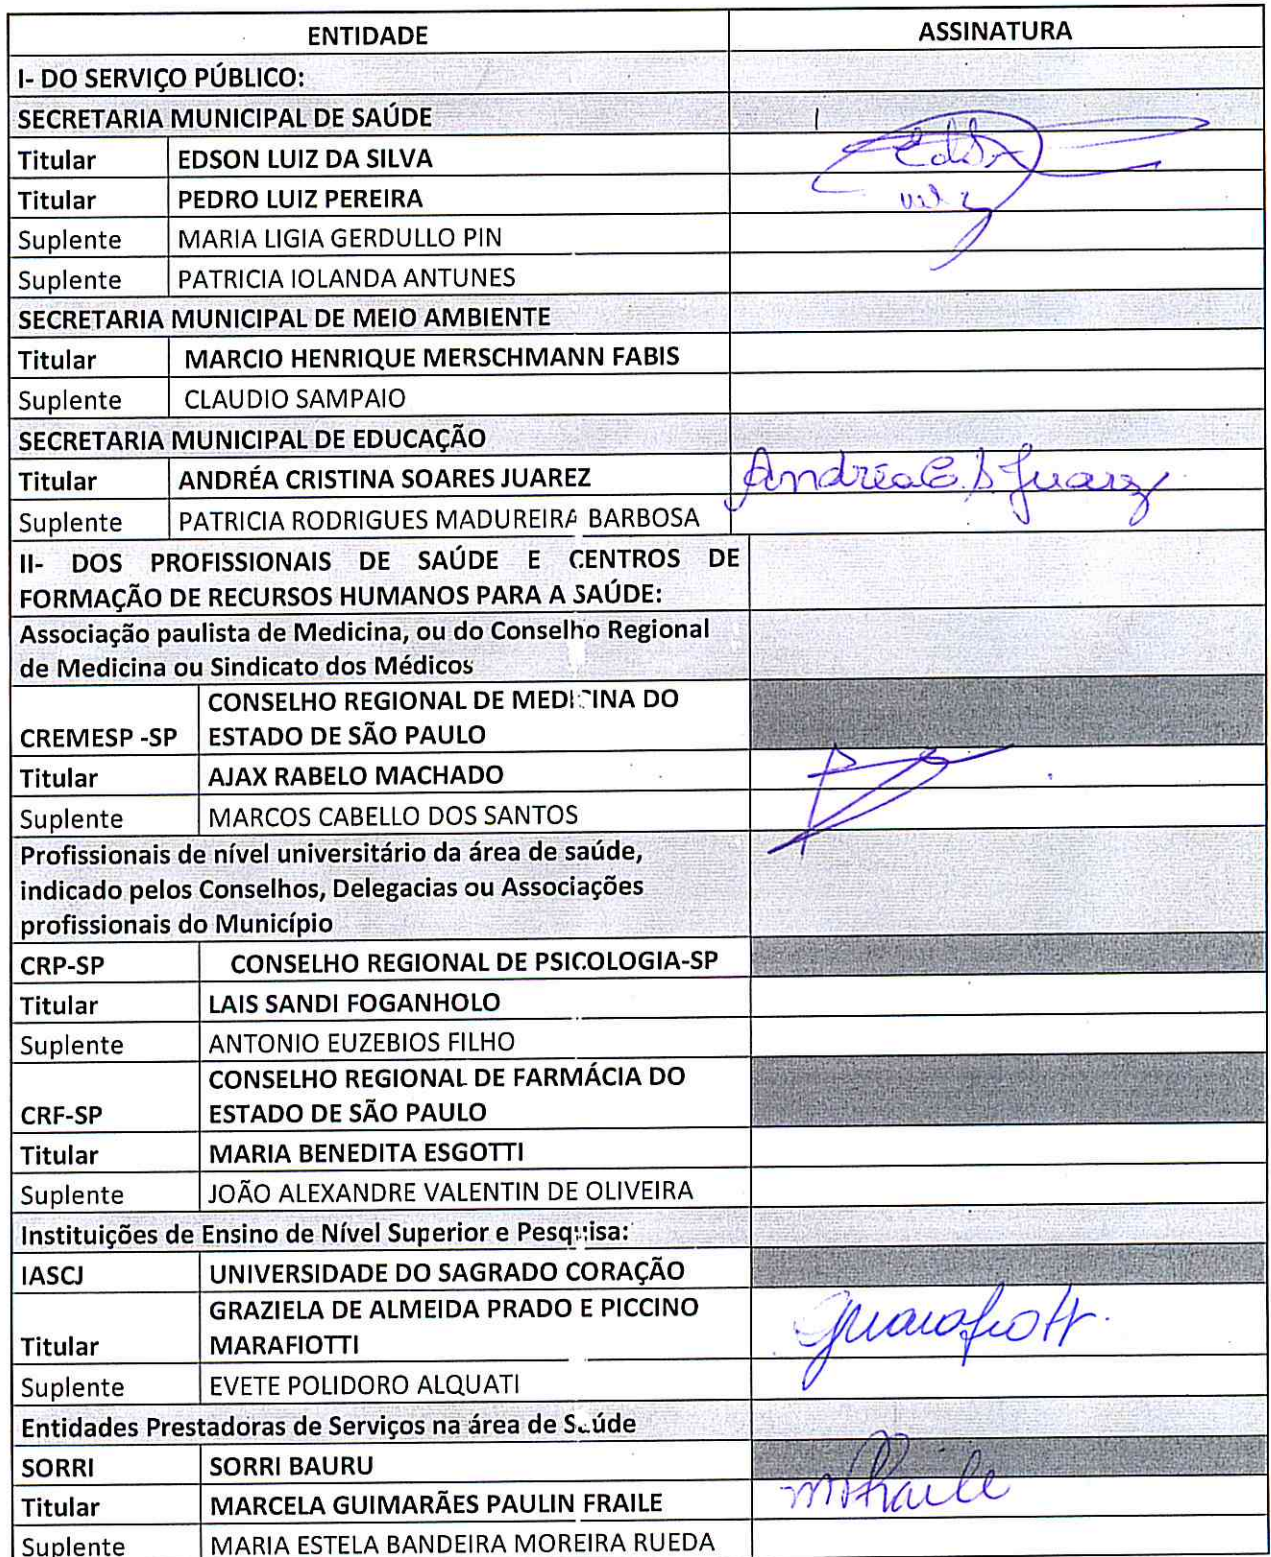 ENTIDADE ASSINATURA
I- DO SERVIÇO PÚBLICO:
SECRETARIA MUNICIPAL DE SAÚDE
Titular EDSON LUIZ DA SILVA
Titular PEDRO LUIZ PEREIRA
Suplente MARIA LIGIA GERDULLO PIN
Suplente PATRICIA IOLANDA ANTUNES
SECRETARIA MUNICIPAL DE MEIO AMBIENTE
Titular MARCIO HENRIQUE MERSCHMANN FABIS
Suplente CLAUDIO SAMPAIO
SECRETARIA MUNICIPAL DE EDUCAÇÃO
Titular ANDRÉA CRISTINA SOARES JUAREZ Andréa C. S Juarez
Suplente PATRICIA RODRIGUES MADUREIRA BARBOSA
II- DOS PROFISSIONAIS DE SAÚDE E CENTROS DE
FORMAÇÃO DE RECURSOS HUMANOS PARA A SAÚDE:
Associação paulista de Medicina, ou do Conselho Regional
de Medicina ou Sindicato dos Médicos
CONSELHO REGIONAL DE MEDICINA DO
CREMESP -SP ESTADO DE SÃO PAULO
Titular AJAX RABELO MACHADO
Suplente MARCOS CABELLO DOS SANTOS
Profissionais de nível universitário da área de saúde,
indicado pelos Conselhos, Delegacias ou Associações
profissionais do Município
CRP-SP CONSELHO REGIONAL DE PSICOLOGIA-SP
Titular LAIS SANDI FOGANHOLO
Suplente ANTONIO EUZEBIOS FILHO
CONSELHO REGIONAL DE FARMÁCIA DO
CRF-SP ESTADO DE SÃO PAULO
Titular MARIA BENEDITA ESGOTTI
Suplente JOÃO ALEXANDRE VALENTIN DE OLIVEIRA
Instituições de Ensino de Nível Superior e Pesquisa:
IASCJ UNIVERSIDADE DO SAGRADO CORAÇÃO
GRAZIELA DE ALMEIDA PRADO E PICCINO
Titular MARAFIOTTI
Suplente EVETE POLIDORO ALQUATI
Entidades Prestadoras de Serviços na área de Saúde
SORRI SORRI BAURU
Titular MARCELA GUIMARÃES PAULIN FRAILE
Suplente MARIA ESTELA BANDEIRA MOREIRA RUEDA